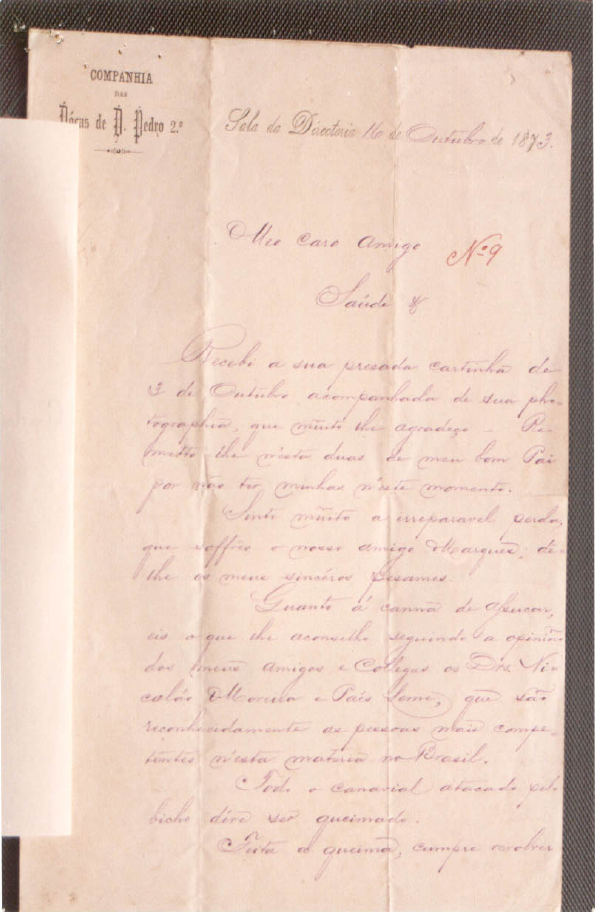 COMPANHIA
DAS
Dócas de D. Pedro 2.º
Sala da Directoria 16 de Outubro de 1873.
Meo caro amigo
Nº 9
Saúde &
Recebi a sua presada cartinha de
3 de Outubro acompanhada de sua pho-
tographia, que muito lhe agradeço - Re-
metto lhe n'esta duas de meu bom Pai
por não ter minhas n'este momento.
Sinto muito a irreparavel perda,
que soffrêo o nosso amigo Marques; dê-
lhe os meus sincéros pesames.
Quanto á canna de assucar,
eis o que lhe aconselho seguindo a opinião
dos meus amigos e Collegas os Drs. Ni-
coláo Moreira e Pais Leme, que são
reconhecidamente as pessoas mais compe-
tentes n'esta materia no Brasil.
Todo o canavial atacado pelo
bicho déve ser queimado.
Feita a queima, cumpre revolver